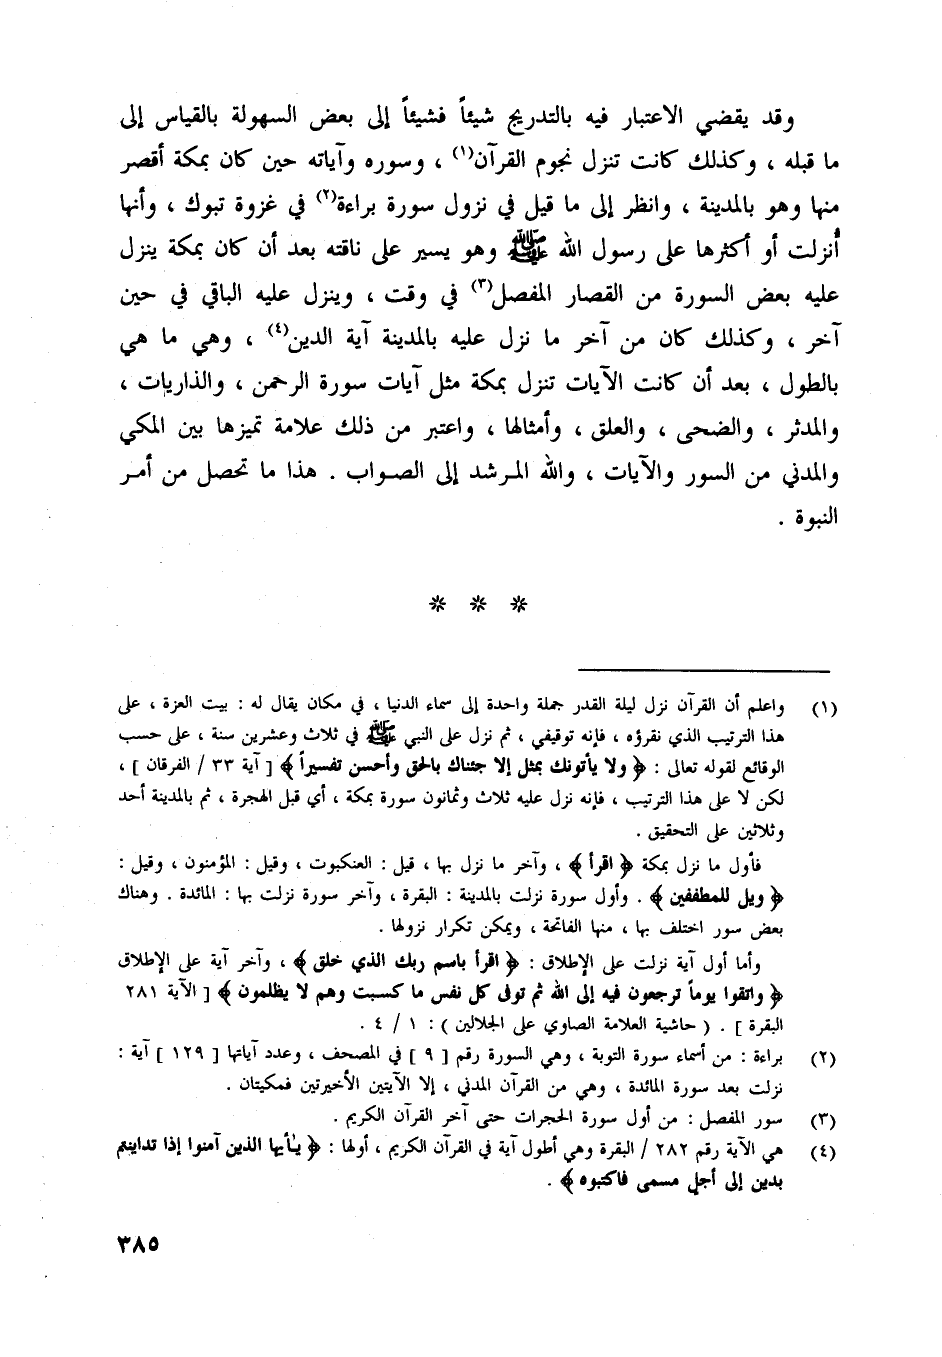 وقد يقضي الاعتبار فيه بالتدريج شيئاً فشيئاً إلى بعض السهولة بالقياس إلى
ما قبله ، وكذلك كانت تنزل نجوم القرآن(١) ، وسوره وآياته حين كان بمكة أقصر
منها وهو بالمدينة ، وانظر إلى ما قيل في نزول سورة براءة(٢) في غزوة تبوك ، وأنها
أُنزلت أو أكثرها على رسول الله ﷺ وهو يسير على ناقته بعد أن كان بمكة ينزل
عليه بعض السورة من القصار المفصل(٣) في وقت ، وينزل عليه الباقي في حين
آخر ، وكذلك كان من آخر ما نزل عليه بالمدينة آية الدين(٤) ، وهي ما هي
بالطول ، بعد أن كانت الآيات تنزل بمكة مثل آيات سورة الرحمن ، والذاريات ،
والمدثر ، والضحى ، والعلق ، وأمثالها ، واعتبر من ذلك علامة تميزها بين المكي
والمدني من السور والآيات ، والله المرشد إلى الصواب . هذا ما تحصل من أمر
النبوة .
* * *
(١) واعلم أن القرآن نزل ليلة القدر جملة واحدة إلى سماء الدنيا ، في مكان يقال له : بيت العزة ، على
هذا الترتيب الذي نقرؤه ، فإنه توقيفي ، ثم نزل على النبي ﷺ في ثلاث وعشرين سنة ، على حسب
الوقائع لقوله تعالى : ﴿ ولا يأتونك بمثل إلا جئناك بالحق وأحسن تفسيراً ﴾ [ آية ٣٣ / الفرقان ] ،
لكن لا على هذا الترتيب ، فإنه نزل عليه ثلاث وثمانون سورة بمكة ، أي قبل الهجرة ، ثم بالمدينة أحد
وثلاثين على التحقيق .
فأول ما نزل بمكة ﴿ اقرأ ﴾ ، وآخر ما نزل بها ، قيل : العنكبوت ، وقيل : المؤمنون ، وقيل :
﴿ ويل للمطففين ﴾ . وأول سورة نزلت بالمدينة : البقرة ، وآخر سورة نزلت بها : المائدة . وهناك
بعض سور اختلف بها ، منها الفاتحة ، ويمكن تكرار نزولها .
وأما أول آية نزلت على الإطلاق : ﴿ اقرأ باسم ربك الذي خلق ﴾ ، وآخر آية على الإطلاق
﴿ واتقوا يوماً ترجعون فيه إلى الله ثم توفى كل نفس ما كسبت وهم لا يظلمون ﴾ [ الآية ٢٨١
البقرة ] . ( حاشية العلامة الصاوي على الجلالين ) : ١ / ٤ .
(٢) براءة : من أسماء سورة التوبة ، وهي السورة رقم [ ٩ ] في المصحف ، وعدد آياتها [ ١٢٩ ] آية :
نزلت بعد سورة المائدة ، وهي من القرآن المدني ، إلا الآيتين الأخيرتين فمكيتان .
(٣) سور المفصل : من أول سورة الحجرات حتى آخر القرآن الكريم .
(٤) هي الآية رقم ٢٨٢ / البقرة وهي أطول آية في القرآن الكريم ، أولها : ﴿ يأيها الذين آمنوا إذا تداينتم
بدين إلى أجل مسمى فاكتبوه ﴾ .
٣٨٥